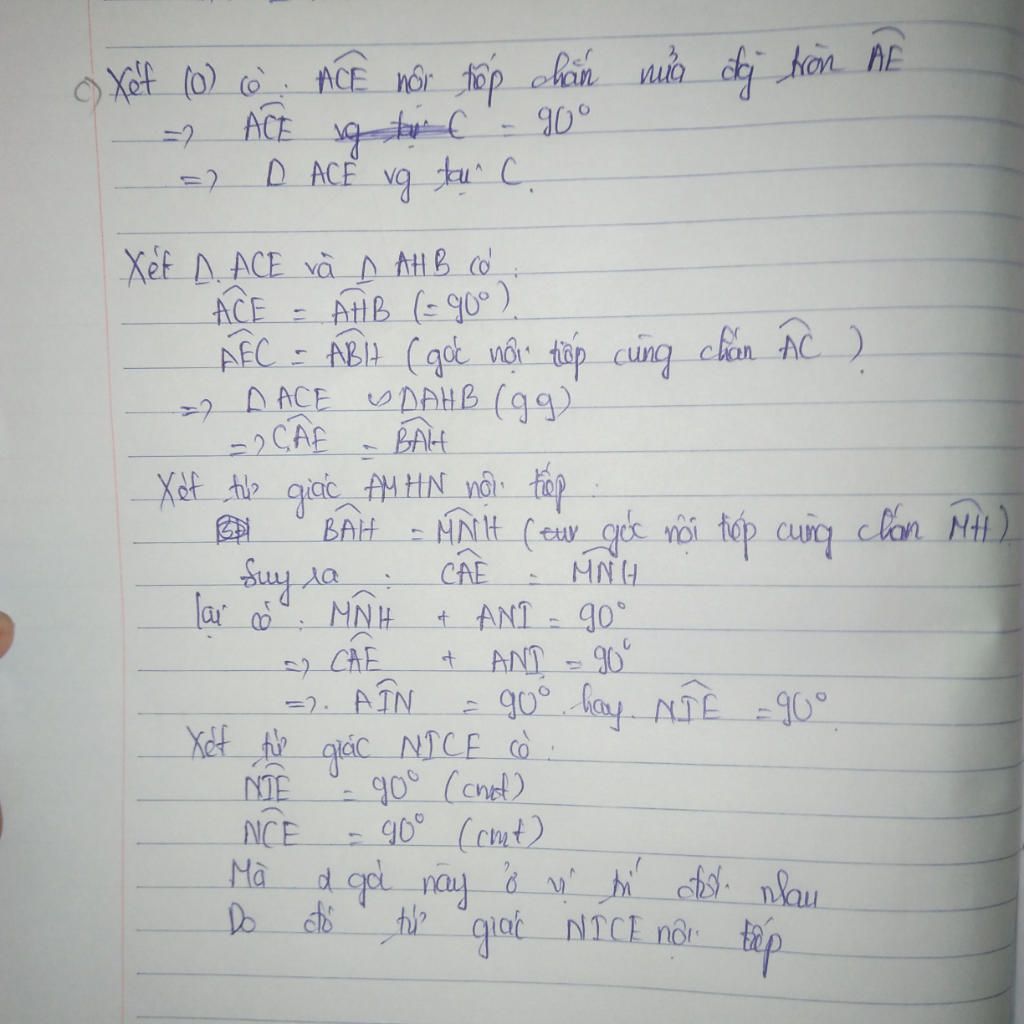 c) Xét (O) có: ACE nội tiếp chắn nửa đg tròn AE
=> ACE = 90°
=> Δ ACE vg tại C.
Xét Δ ACE và Δ AHB có:
ACE = AHB (= 90°).
AEC = ABH (góc nội tiếp cùng chắn AC)
=> Δ ACE ∽ Δ AHB (gg)
=> CAE = BAH
Xét tứ giác AMHN nội tiếp:
BAH = MNH (góc nội tiếp cùng chắn MH)
Suy ra: CAE = MNH
lại có: MNH + ANI = 90°
=> CAE + ANI = 90°
=>. AIN = 90°. hay. NIE = 90°.
Xét tứ giác NICE có:
NIE = 90° (cmt)
NCE = 90° (cmt)
Mà 2 góc này ở vị trí đối nhau
Do đó tứ giác NICE nội tiếp